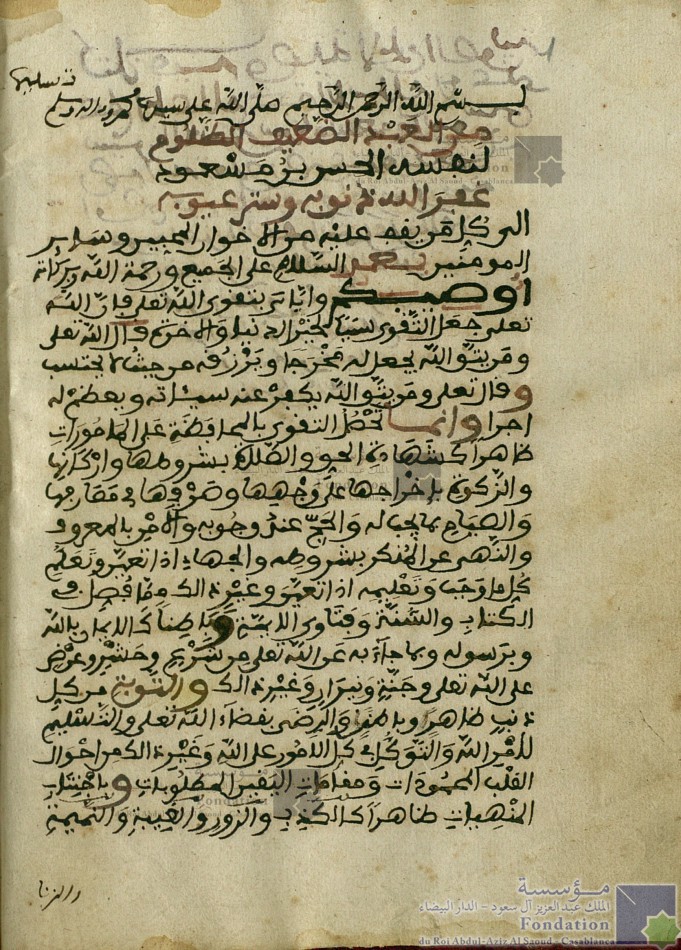 تسليما
بسم الله الرحمن الرحيم صلى الله على سيدنا محمد وءاله وسلم
من العبد الضعيف الظلوم
لنفسه الحسن بن مسعود
غفر الله ذنوبه وستر عيوبه
الى كل من يقف عليه من الاخوان المحبين وساير
المومنين بعد السلام على الجميع ورحمة الله وبركاته
أوصيكم واياي بتقوى الله تعلى فان الله
تعلى جعل التقوى سببا لخير الدنيا والاخرة قال الله تعلى
ومن يتق الله يجعل له مخرجا ويرزقه من حيث لا يحتسب
وقال تعلى ومن يتق الله يكفر عنه سيئاته ويعظم له
اجرا وانما تحصل التقوى بالمحافظة على المامورات
ظاهرا كشهادة الحق والصلاة بشروطها واركانها
والزكوة باخراجها على وجهها وصرفها في مصارفها
والصيام بما يجب له والحج عند وجوبه والامر بالمعروف
والنهى عن المنكر بشروطه والجهاد اذا تعين وتعلم
كل ما وجب وتعليمه اذا تعين وغير ذالك مما فصل في
الكتاب والسنة وفتاوى الايمة وباطنا كالايمان بالله
وبرسوله وبما جاء به عن الله تعلى من نشر وحشر وعرض
على الله تعلى وجنة ونيران وغير ذالك والتوبة من كل
ذنب ظاهرا وباطنا والرضى بقضاء الله تعلى والتسليم
لأمر الله والتوكل في كل الامور على الله وغير ذالك من احوال
القلب المحمودات ومقامات اليقين المطلوبات وباجتناب
المنهيات ظاهرا كالكذب والزور والغيبة والنميمة
والزنا
مؤسسة
الملك عبد العزيز آل سعود - الدار البيضاء
Fondation
du Roi Abdul-Aziz Al Saoud - Casablanca